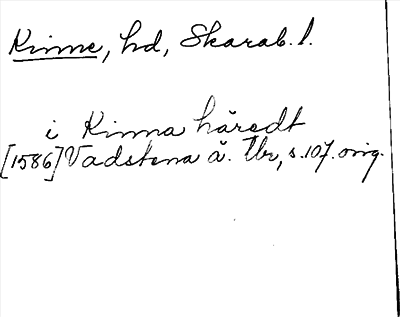 Kinne, hd, Skarab. l.
i Kinna häredt
[1586] Vadstena ä. Ubr, s. 107. orig.